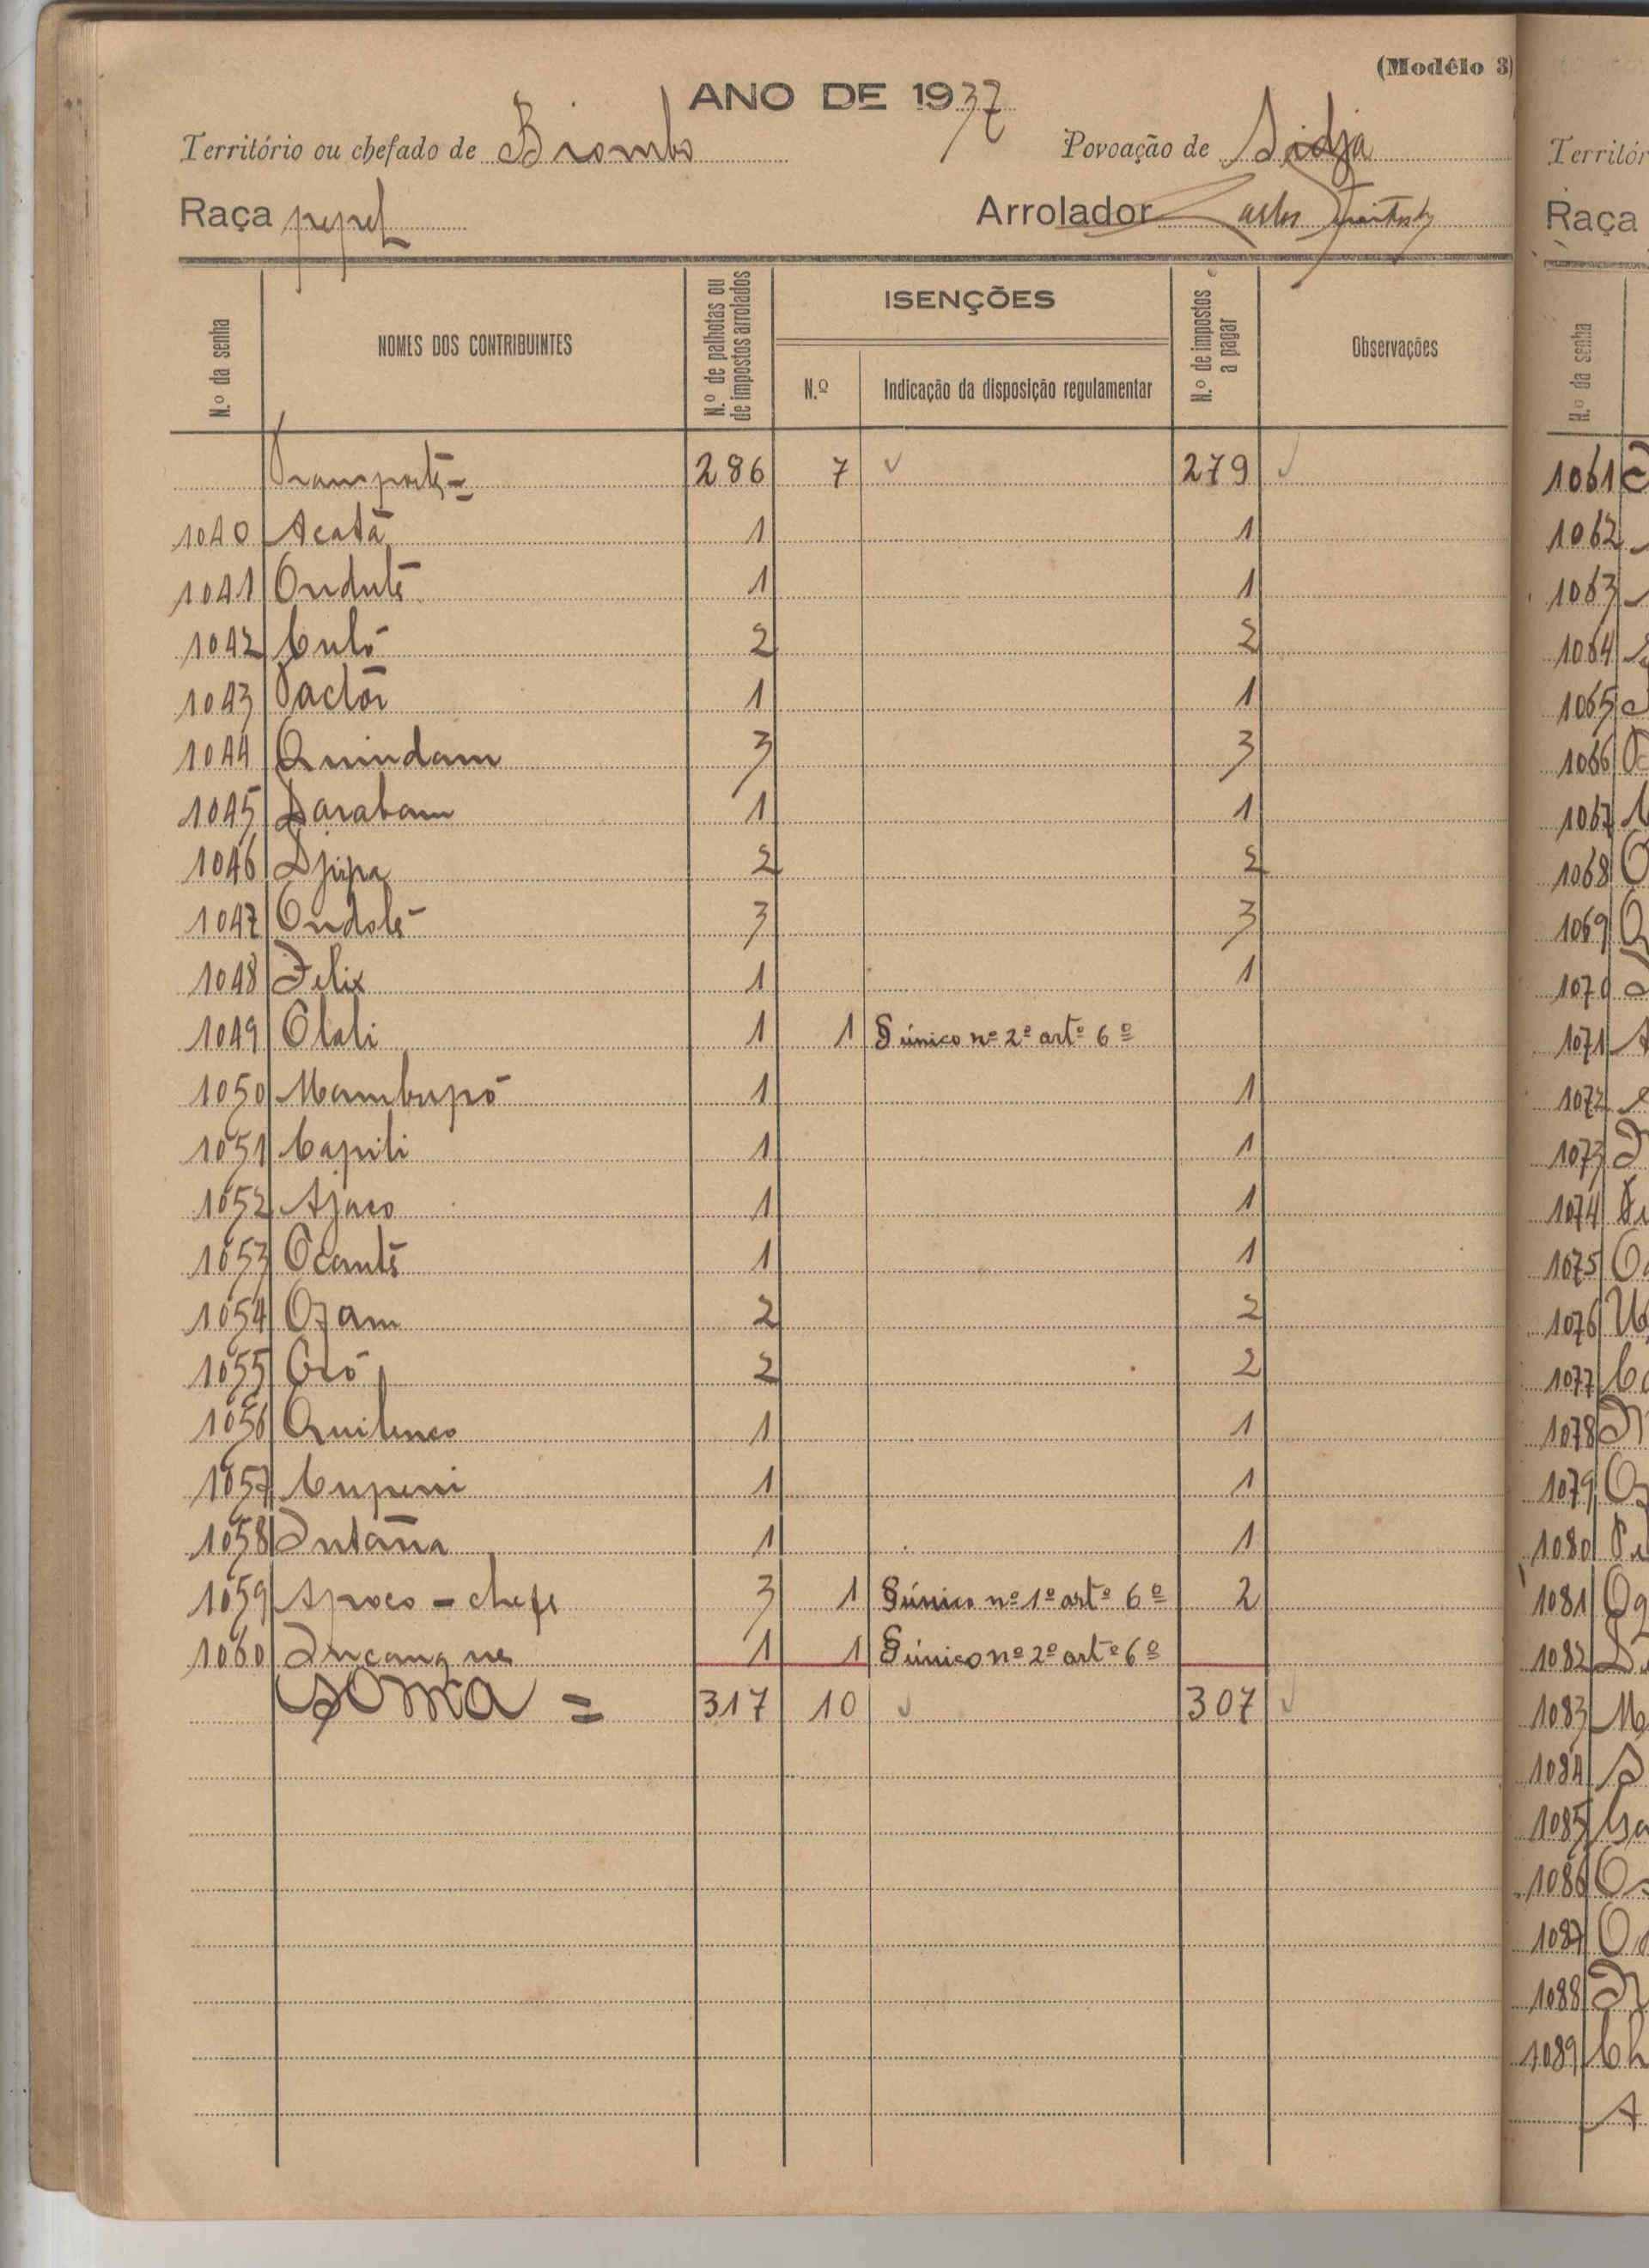 (Modêlo 3)
ANO DE 1937
Território ou chefado de Biombo Povoação de Sidja
Raça pepel Arrolador Carlos
N.º da senha NOMES DOS CONTRIBUINTES N.º de palhotas ou de impostos arrolados ISENÇÕES N.º de impostos a pagar Observações
N.º Indicação da disposição regulamentar
Transporte = 286 7 ✓ 279 ✓
1040 Acatã 1 1
1041 Ondutê 1 1
1042 Culó 2 2
1043 Pactôr 1 1
1044 Quindam 3 3
1045 Darabam 1 1
1046 Djipa 2 2
1047 Ondolé 3 3
1048 Felix 1 1
1049 Olali 1 1 § único nº 2º artº 6º
1050 Mambupó 1 1
1051 Capili 1 1
1052 Ajaco 1 1
1053 Ocantê 1 1
1054 Ozam 2 2
1055 Oró 2 2
1056 Quilunco 1 1
1057 Cupeni 1 1
1058 Intaña 1 1
1059 Apoco - chefe 3 1 § único nº 1º artº 6º 2
1060 Incangue 1 1 § único nº 2º artº 6º
Soma = 317 10 ✓ 307 ✓
Territór
Raça
N.º da senha
1061
1062
1063
1064
1065
1066
1067
1068
1069
1070
1071
1072
1073
1074
1075
1076
1077
1078
1079
1080
1081
1082
1083
1084
1085
1086
1087
1088
1089